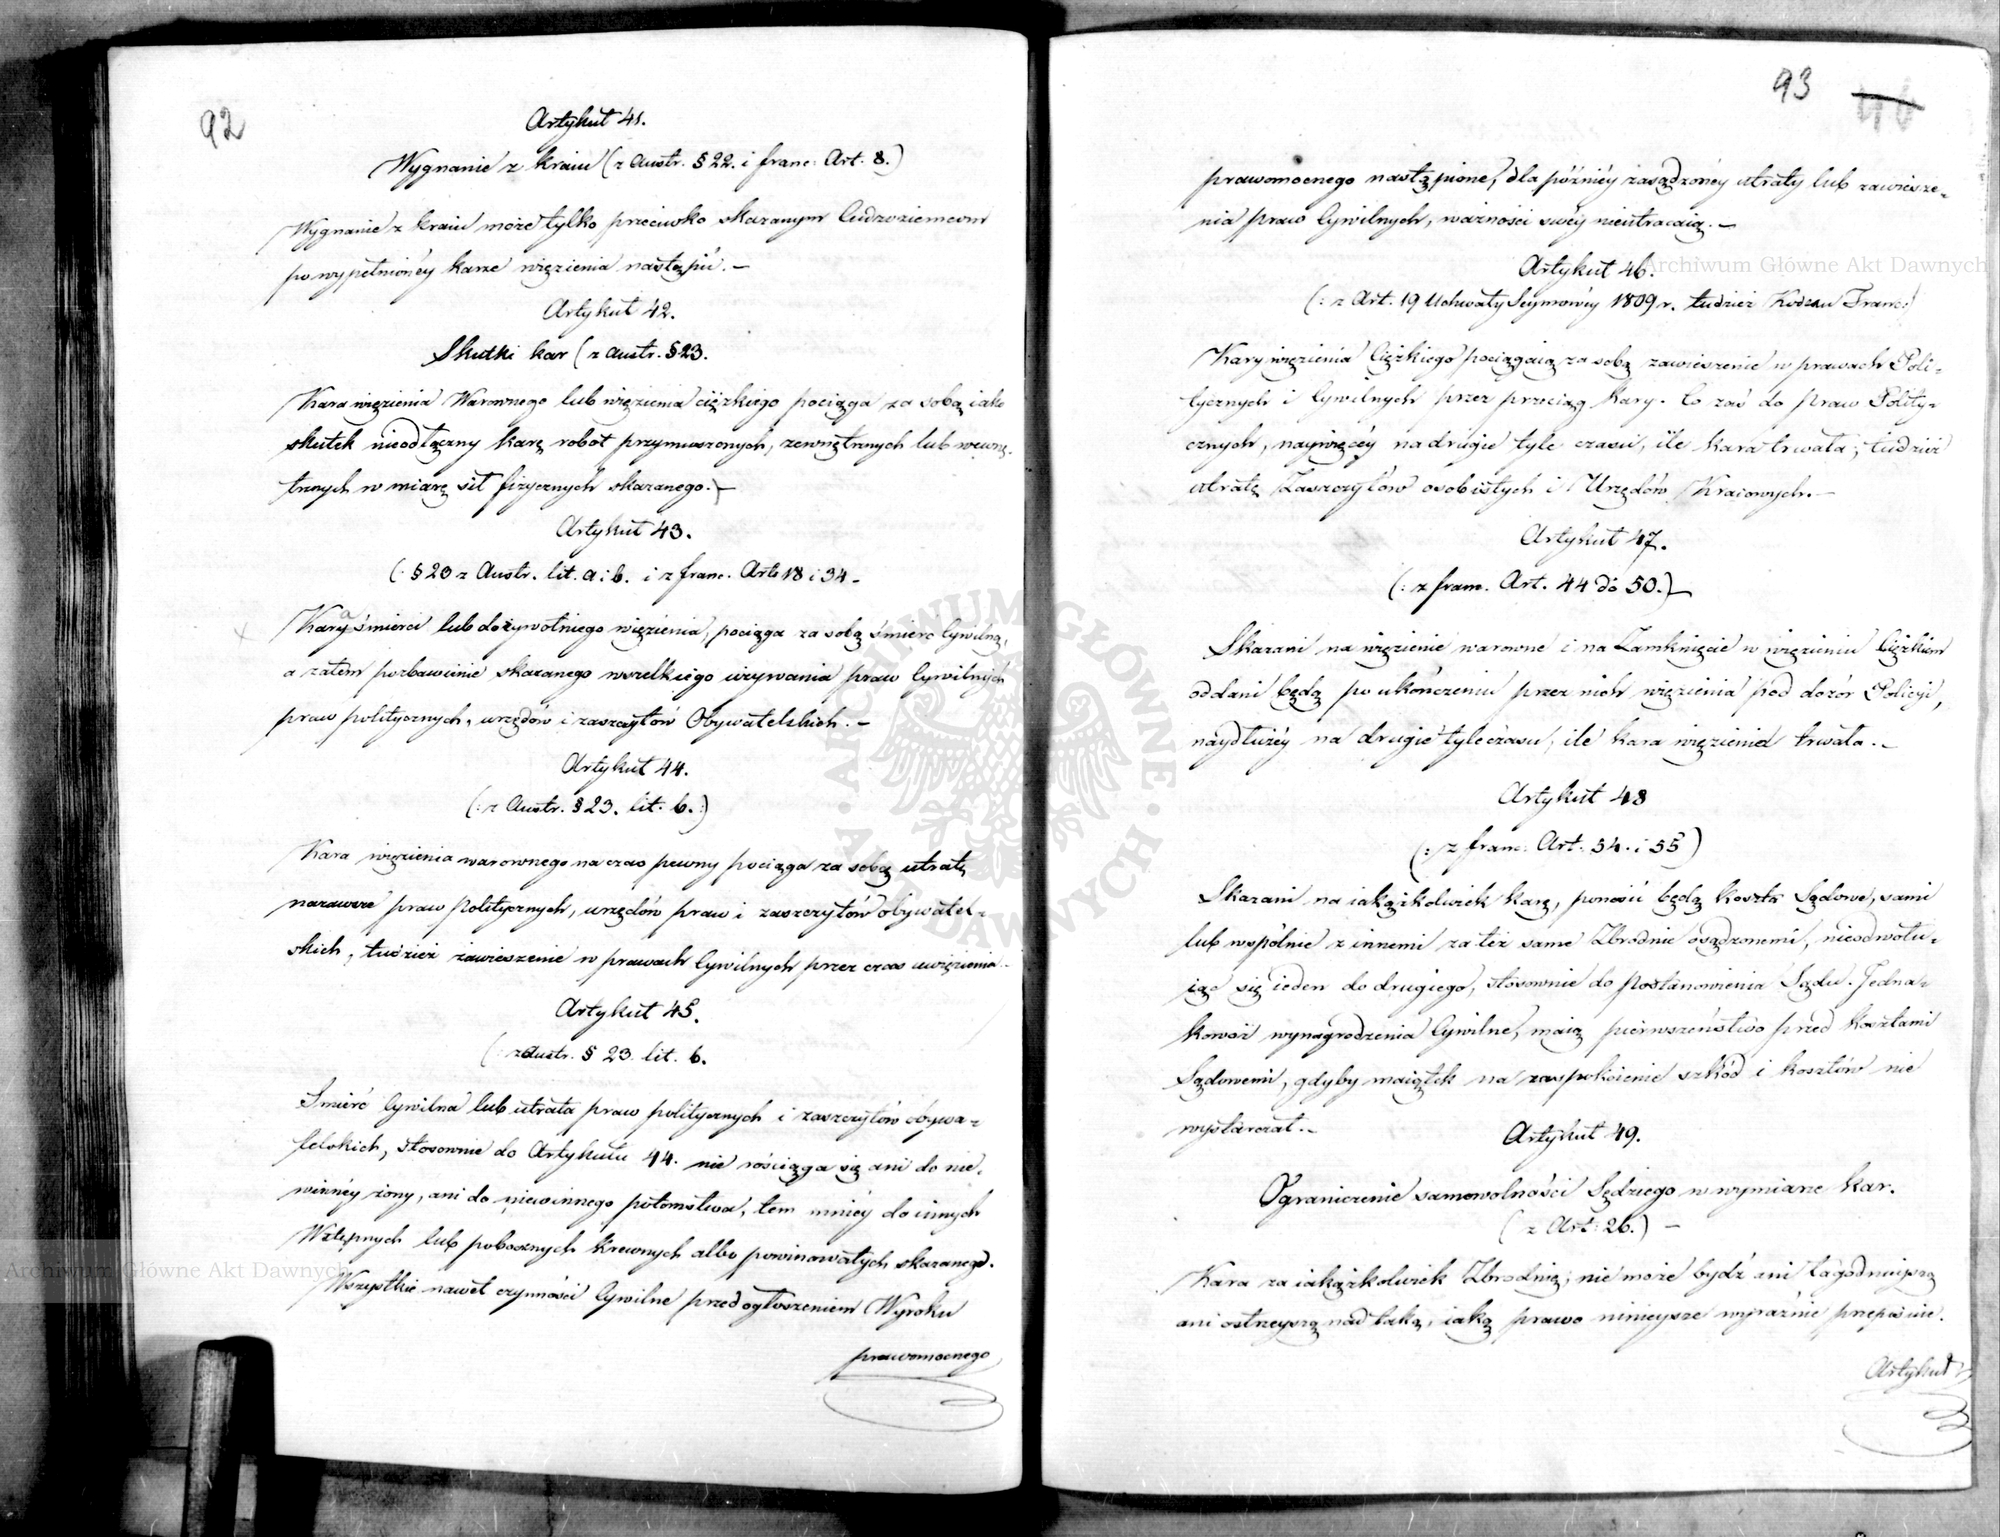 92
Artykuł 41.
Wygnanie z kraiu (z Austr. § 22. i franc: Art. 8.)
Wygnanie z kraiu może tylko przeciwko skazanym Cudzoziemcom
po wypełnionéy karze więzienia nastąpić. –
Artykuł 42.
Skutki kar (z Austr. § 23.
Kara więzienia Warownego lub więzienia cięzkiego pociąga za sobą iako
skutek nieodłączny karę robót przymuszonych, zewnętrznych lub wewnę-
trznych w miarę sił fizycznych skazanego. –
Artykuł 43.
(: § 23 z Austr. lit. a i b. i z franc. Art. 18 i 34 –
Kara śmierci lub dożywotniego więzienia, pociąga za sobą śmierć Cywilną,
a zatem pozbawienie skazanego wszelkiego używania praw Cywilnych
praw politycznych, urzędów i zaszczytów Obywatelskich. –
Artykuł 44.
(: z Austr. § 23. lit. b. :)
Kara więzienia warownego na czas pewny pociąga za sobą utratę
nazawsze praw politycznych, urzędów praw i zaszczytów obywatel-
skich, tudzież zawieszenie w prawach Cywilnych przez czas uwięzienia –
Artykuł 45.
(: z Austr. § 23. lit. b.
Śmierć Cywilna lub utrata praw politycznych i zaszczytów obywa-
telskich, stosownie do Artykułu 44. nie rościąga się ani do nie-
winnéy żony, ani do niewinnego potomstwa, tem mniéy do innych
Wstępnych lub pobocznych krewnych albo powinowatych skazanego.
Wszystkie nawet czynności Cywilne przed ogłoszeniem Wyroku
prawomocnego
93 46
prawomocnego nastąpione, dla późniéy zasądzonéy utraty lub zawiesze-
nia praw Cywilnych, ważności swéy nieutracaią. –
Artykuł 46.
(: z Art. 19 Uchwały Seymowéy 1809 r. tudzież Kodexu Franc:)
Kary więzienia Cięzkiego pociągaią za sobą zawieszenie w prawach Poli-
tycznych i Cywilnych przez przeciąg Kary. Co zaś do praw Polity-
cznych, naywięcéy na drugie tyle czasu, ile kara trwała; tudzież
utratę Zaszczytów osobistych i Urzędów Kraiowych. –
Artykuł 47.
(: z franc. Art. 44 do 50.) –
Skazani na więzienie warowne i na Zamknięcie w więzieniu Cięzkiem
oddani będą po ukończeniu przez nich więzienia pod dozór Policyi,
naydłużéy na drugie tyle czasu, ile kara więzienia trwała. –
Artykuł 48
(: z franc: Art. 54. i 55)
Skazani na iakążkolwiek karę, ponosić będą koszta Sądowe, sami
lub wspólnie z innemi za też same Zbrodnie osądzonemi, nieodwołu-
iąc się ieden do drugiego, stosownie do postanowienia Sądu. Jedna-
kowoż wynagrodzenia Cywilne, maią pierwszeństwo przed kosztami
Sądowemi, gdyby maiątek na zaspokoienie szkód i kosztów nie
wystarczał. –
Artykuł 49.
Ograniczenie samowolności Sędziego w wymiarze kar.
(z Art: 26.) –
Kara za iakążkolwiek Zbrodnię, nie może bydź ani łagodnieyszą
ani ostrzeyszą nad taką, iaką prawo ninieysze wyraźnie przepisuie.
Artykuł
Archiwum Główne Akt Dawnych
Archiwum Główne Akt Dawnych
ARCHIWUM GŁÓWNE AKT DAWNYCH